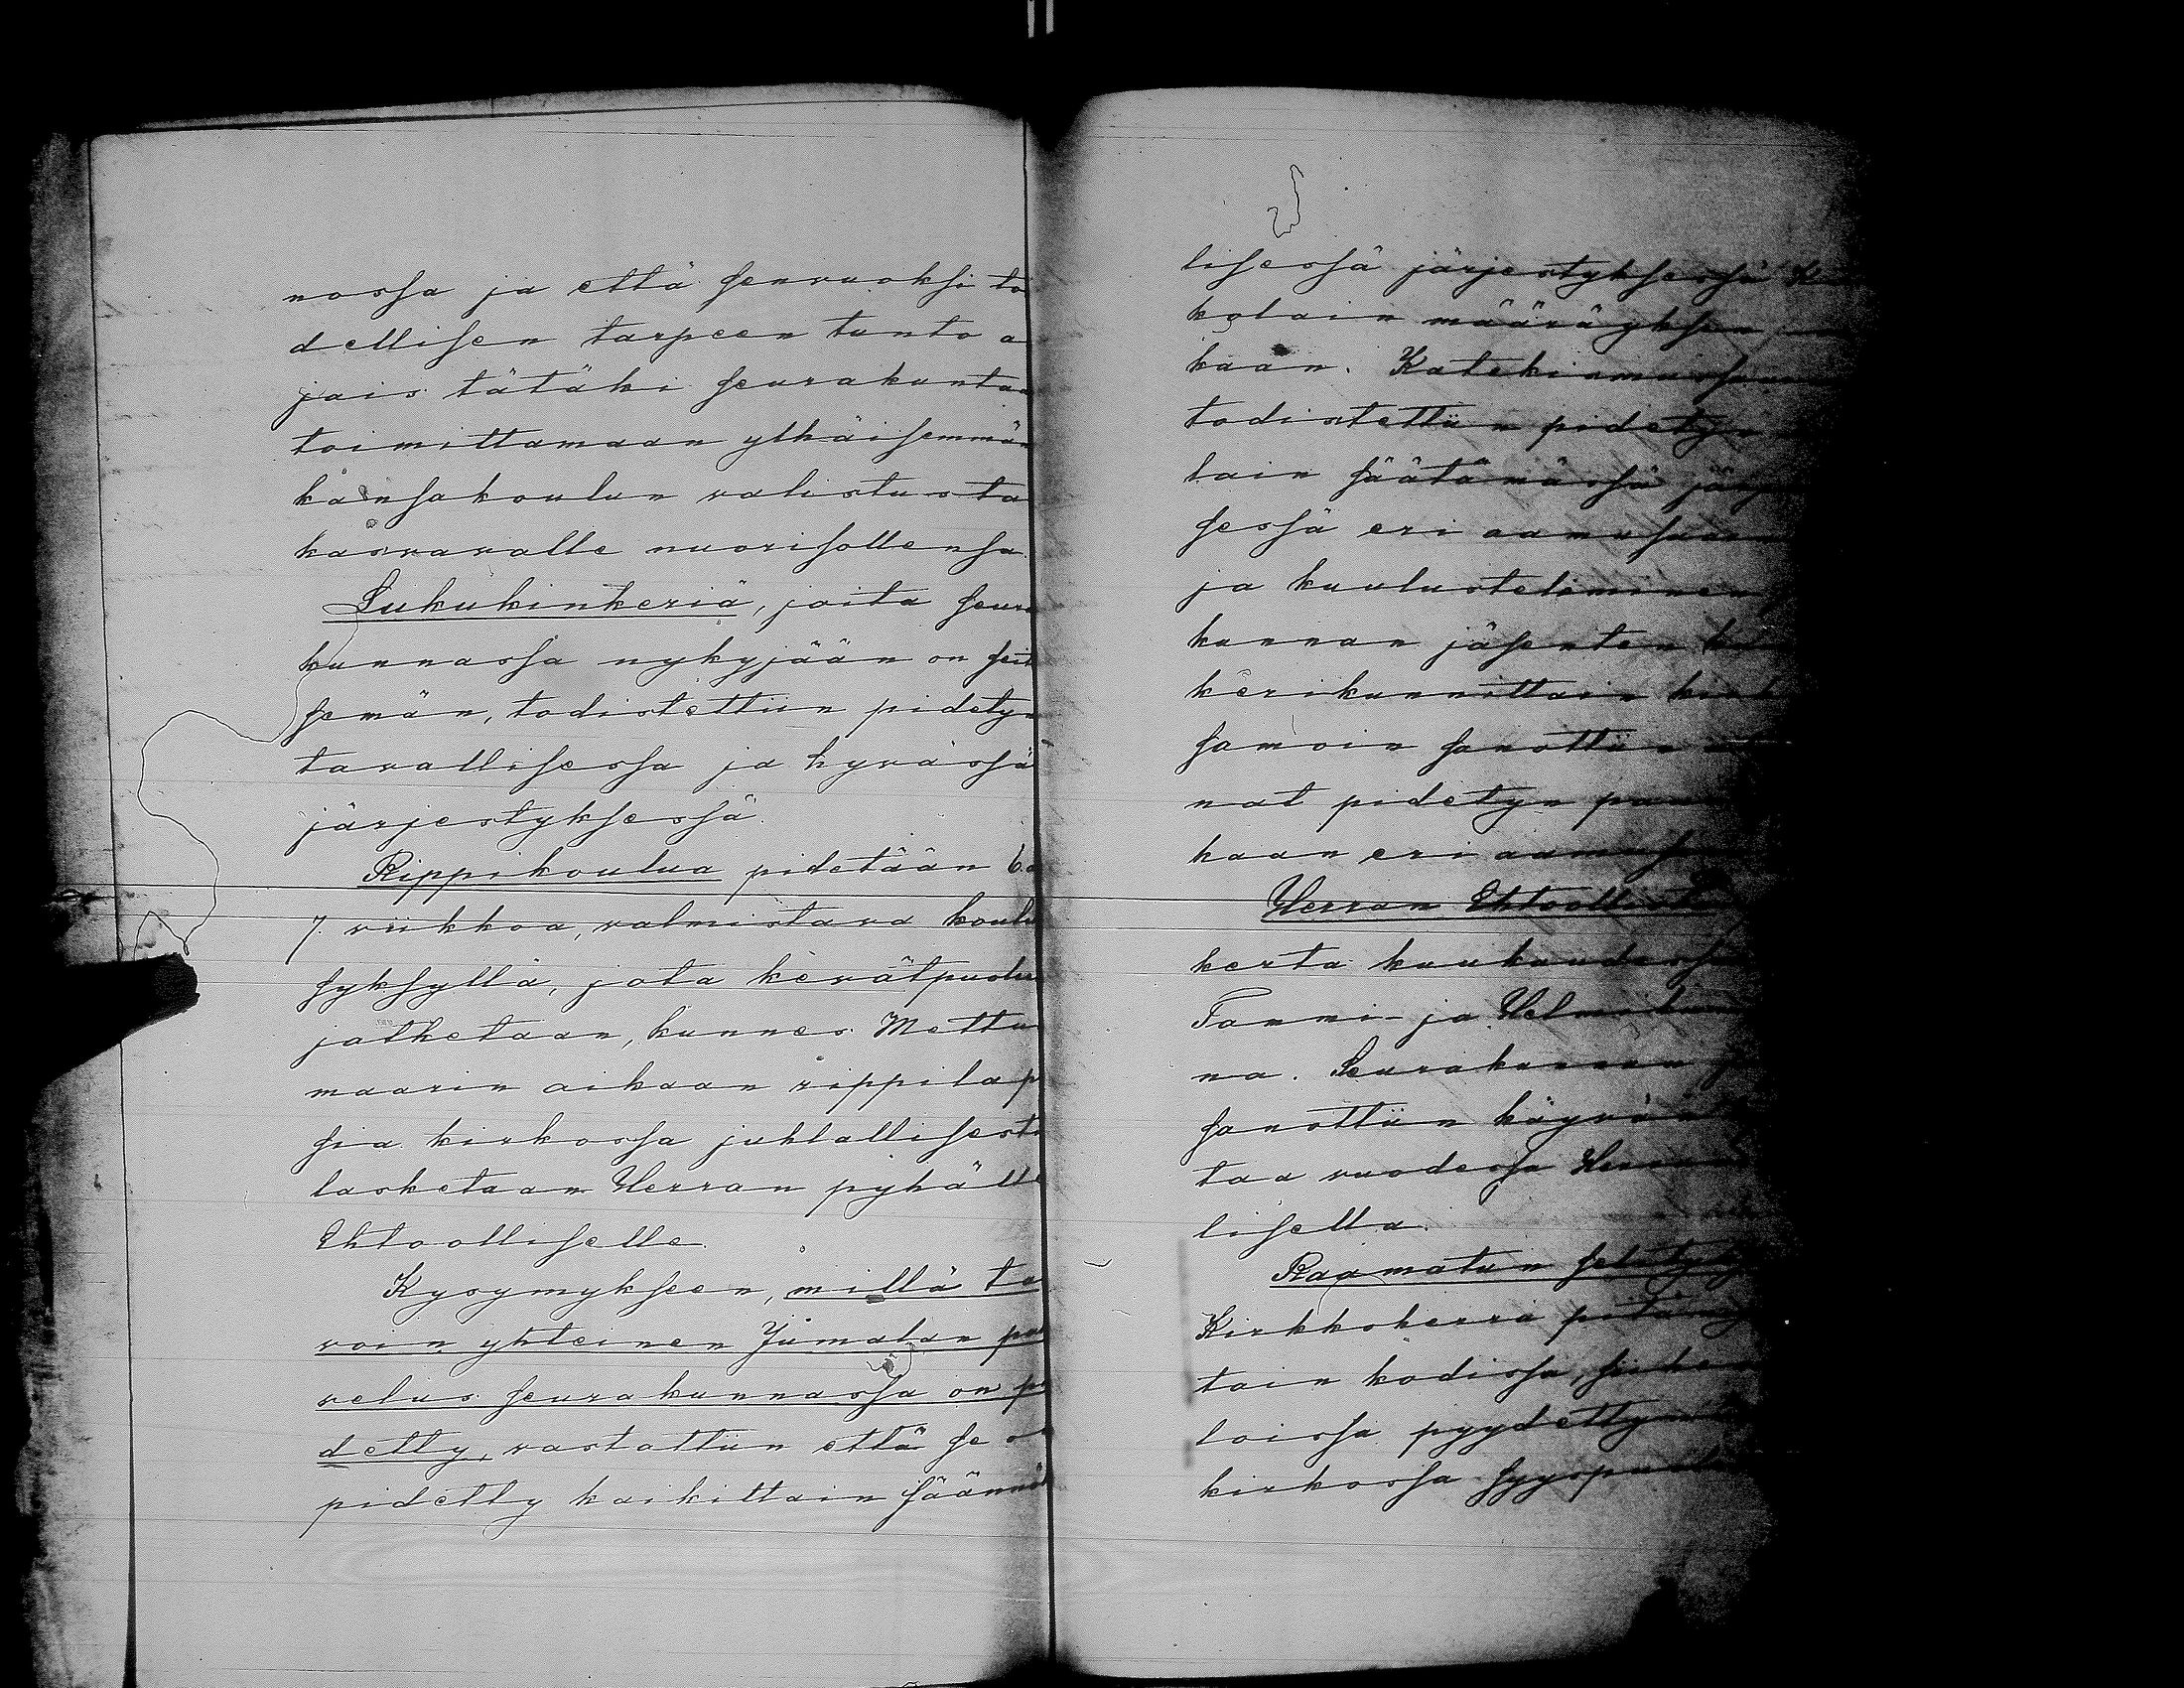 nossa ja että senvuoksi to
dellisen tarpeen tunto a
jais tätäki seurakuntaa
toimittamaan ylhäisemmän
kansakoulun valistusta
kasvavalle nuorisollensa.
Lukukinkeriä, joita seura
kunnassa nykyjään on seit
semän, todistettiin pidetyn
tavallisessa ja hyvässä
järjestyksessä.
Rippikoulua pidetään 6 a
7. viikkoa, valmistava koulu
syksyllä, jota kevätpuolen
jatketaan, kunnes Mettu
maarin aikaan rippilap
sia kirkossa juhlallisesti
lasketaan Herran pyhälle
Ehtoolliselle.
Kysymykseen, millä ta
voin yhteinen Jumalan pal
velus seurakunnassa on pi
detty, vastattiin että se on
pidetty kaikittain säännöl
lisessä järjestyksessä
kolain määräyksen
kaan. Katekismus
todistettiin pidetyn
lain säätämässä
sessä eri
ja kuulusteleminen
kunnan jäsenten
kerikunnittain
samoin sanottiin
nat pidetyn
kaan eri
Herran Ehtoollista
kerta kuukaudessa
Tammi- ja Helmikuun
na. Seurakunnan
sanottiin käyvän
taa vuodessa Herran
lisella.
Raamatun selityksiä
Kirkkoherra pitänyt
tain kodissa,
loissa pyydettynä
kirkossa syyspuolen